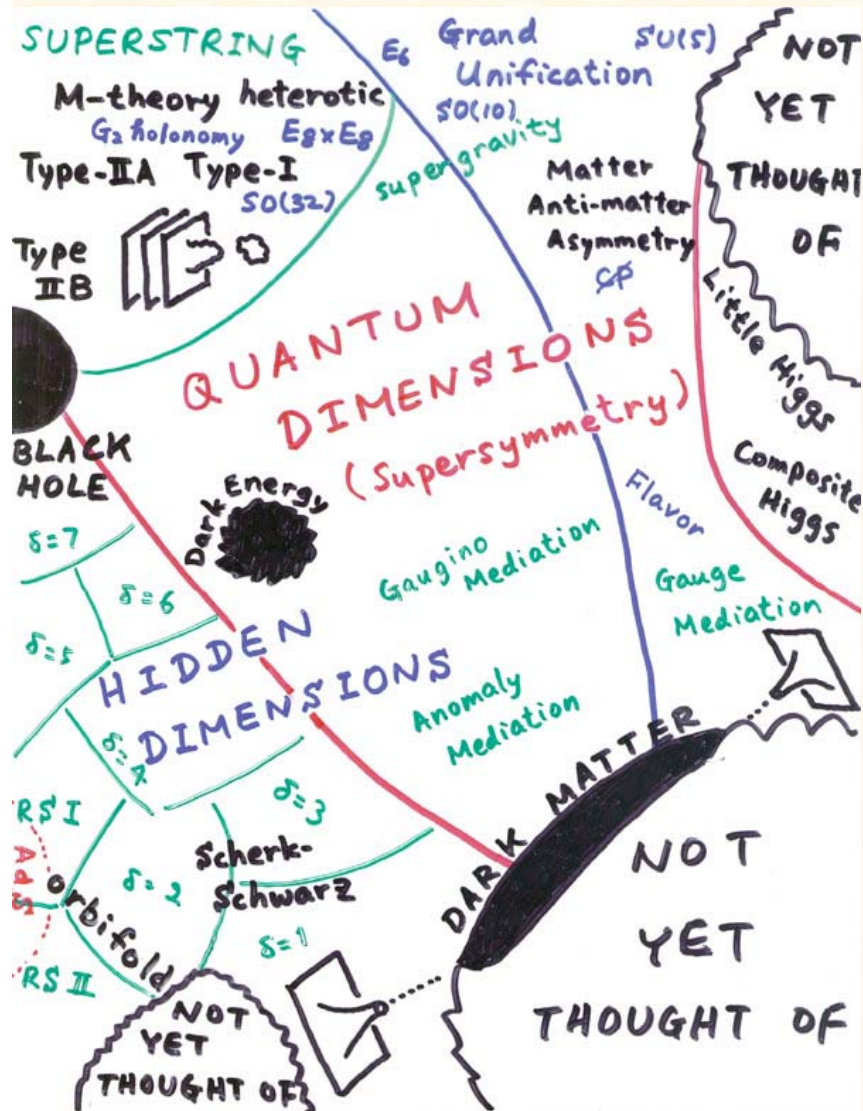 SUPERSTRING
M-theory heterotic
G₂ holonomy E8×E8
Type-IIA Type-I
SO(32)
Type
IIB
E₆
Grand
Unification
SU(5)
SO(10)
supergravity
Matter
Anti-matter
Asymmetry
C̸P̸
NOT
YET
THOUGHT
OF
Little Higgs
Composite
Higgs
QUANTUM
DIMENSIONS
(Supersymmetry)
BLACK
HOLE
Dark Energy
Flavor
Gaugino
Mediation
Gauge
Mediation
Anomaly
Mediation
δ=7
δ=6
δ=5
HIDDEN
DIMENSIONS
δ=4
δ=3
RS I
AdS
orbifold
δ=2
Scherk-
Schwarz
δ=1
RS II
DARK MATTER
NOT
YET
THOUGHT OF
NOT
YET
THOUGHT OF